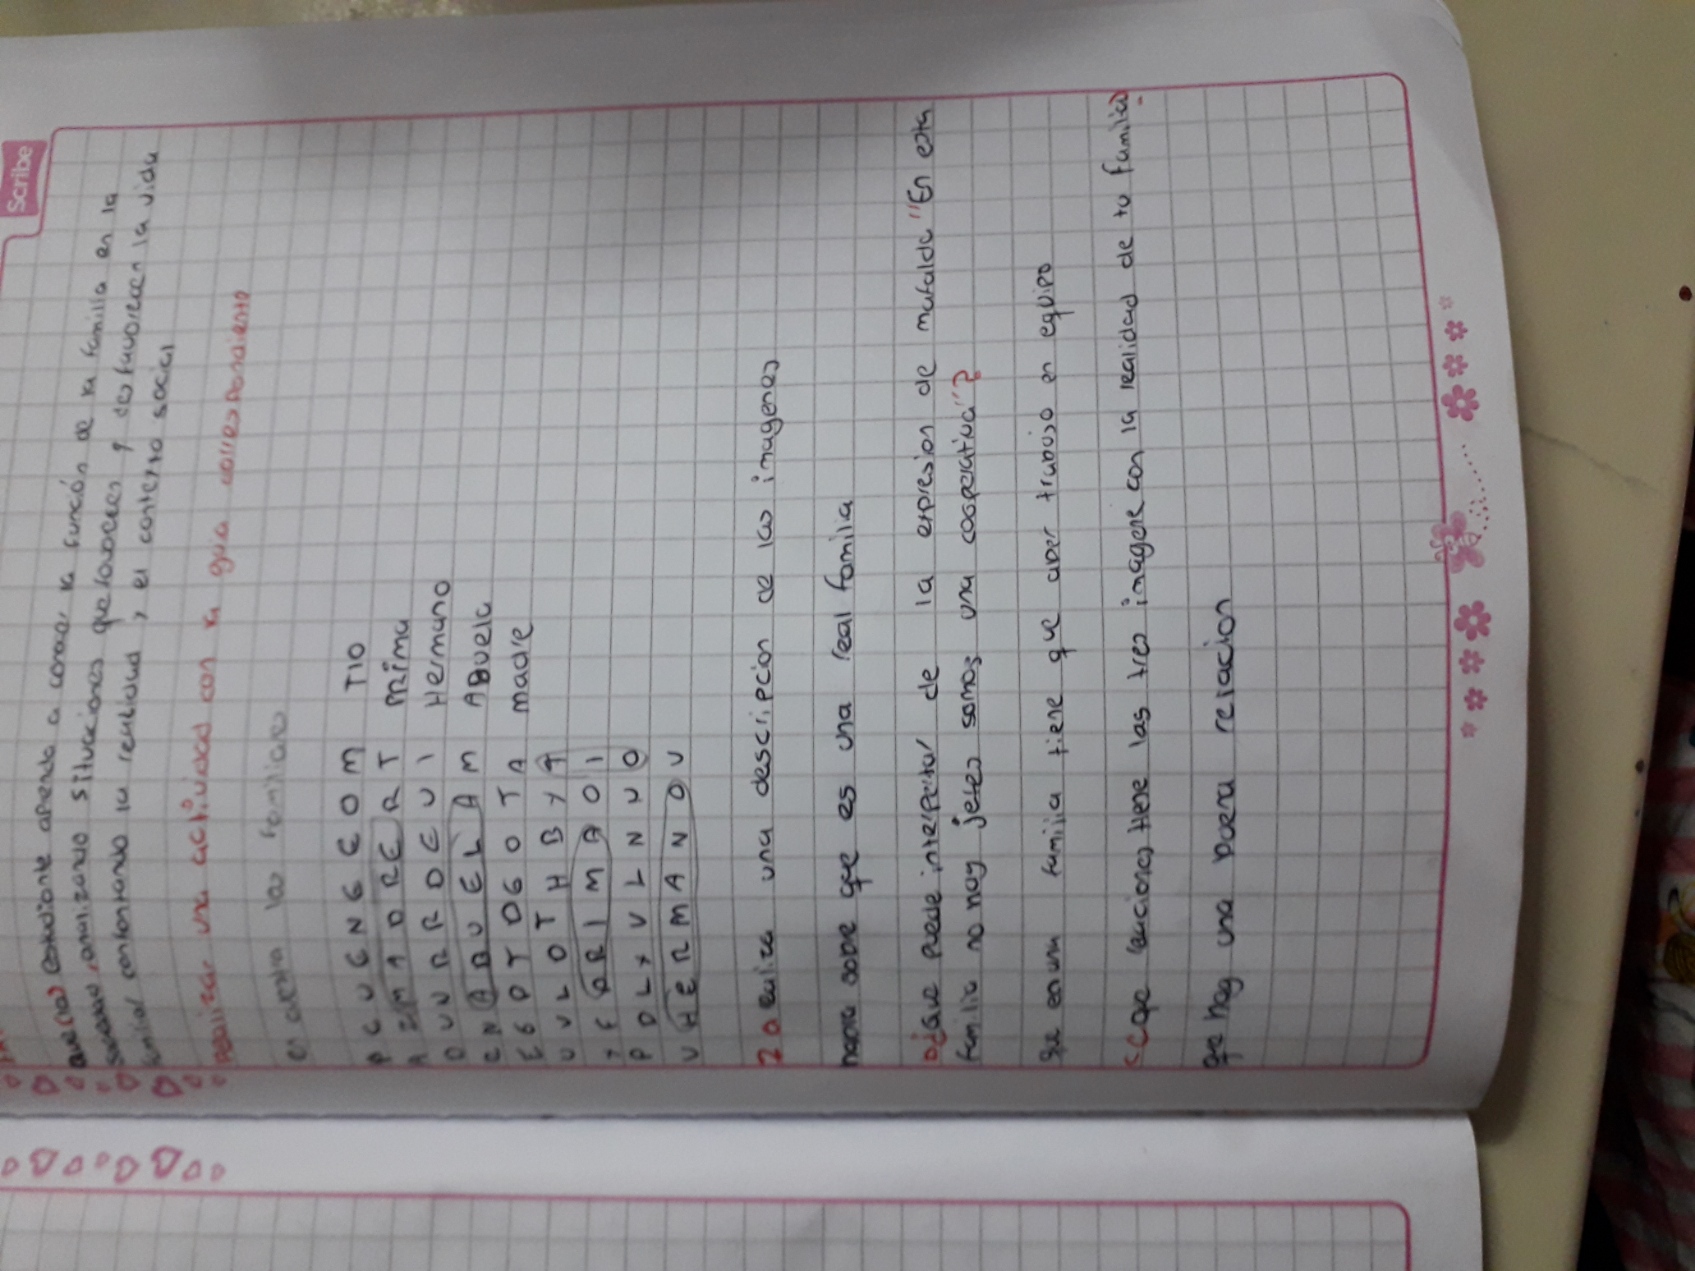 Scribe
que(la) estudiante aprenda a conocer la función de la familia en la
sociedad, analizando situaciones que favorecen y desfavorecen la vida
familiar confrontando la realidad y el contexto social
Realizar una actividad con la guia correspondiente
los familiares
P C U G N G E O M TIO
A Z M A D R E R T PRimA
D U N R R D E U I Hermano
C N A B U E L A M ABuela
E G D T D G O T A madre
U V L O T H B Y A
I E P R I M A O I
P D L Y U L N U O
U H E R M A N O U
2 una descripcion de las imagenes
habra sobre que es una real familia
¿que puede interpretar de la expresion de mafalda "En esta
familia no hay jefes somos una cooperativa"?
que en una familia tiene que aber trabajo en equipo
¿que relaciones tiene las tres imagene con la realidad de tu familia?
que hay una buena relacion